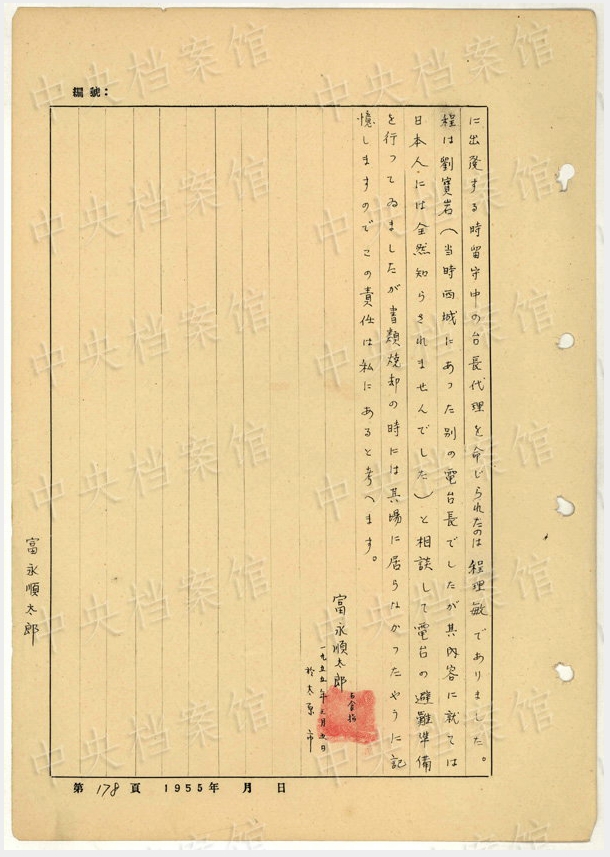 編號：
に出發する時留守中の台長代理を命じられたのは程理敏でありました。
程は劉寶岩（当時西城にあった別の電台長でしたが其内容に就ては
日本人には全然知らされませんでした）と相談して電台の避難準備
を行ってゐましたが書類焼却の時には其場に居らなかったやうに記
憶しますのでこの責任は私にあると考へます。
富永順太郎
右食指
一九五五年三月
於太原市
富永順太郎
第 178 頁 1955年 月 日
中央档案馆